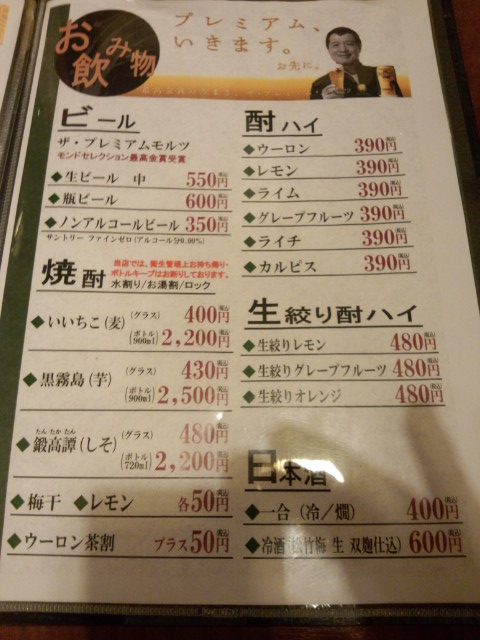 お飲み物
プレミアム、
いきます。
お先に。
ビール
ザ・プレミアムモルツ
モンドセレクション最高金賞受賞
◆生ビール 中 550円税込
◆瓶ビール 600円税込
◆ノンアルコールビール 350円税込
サントリー ファインゼロ(アルコール分0.00%)
焼酎
当店では、衛生管理上お持ち帰り・
ボトルキープはお断りしております。
水割り/お湯割/ロック
◆いいちこ(麦) (グラス) 400円税込
(ボトル900ml) 2,200円税込
◆黒霧島(芋) (グラス) 430円税込
(ボトル900ml) 2,500円税込
たん たか たん
◆鍛高譚(しそ) (グラス) 480円税込
(ボトル720ml) 2,200円税込
◆梅干 ◆レモン 各50円税込
◆ウーロン茶割 プラス50円税込
酎ハイ
◆ウーロン 390円税込
◆レモン 390円税込
◆ライム 390円税込
◆グレープフルーツ 390円税込
◆ライチ 390円税込
◆カルピス 390円税込
生絞り酎ハイ
◆生絞りレモン 480円税込
◆生絞りグレープフルーツ 480円税込
◆生絞りオレンジ 480円税込
日本酒
◆一合(冷/燗) 400円税込
◆冷酒(松竹梅 生 双麹仕込) 600円税込